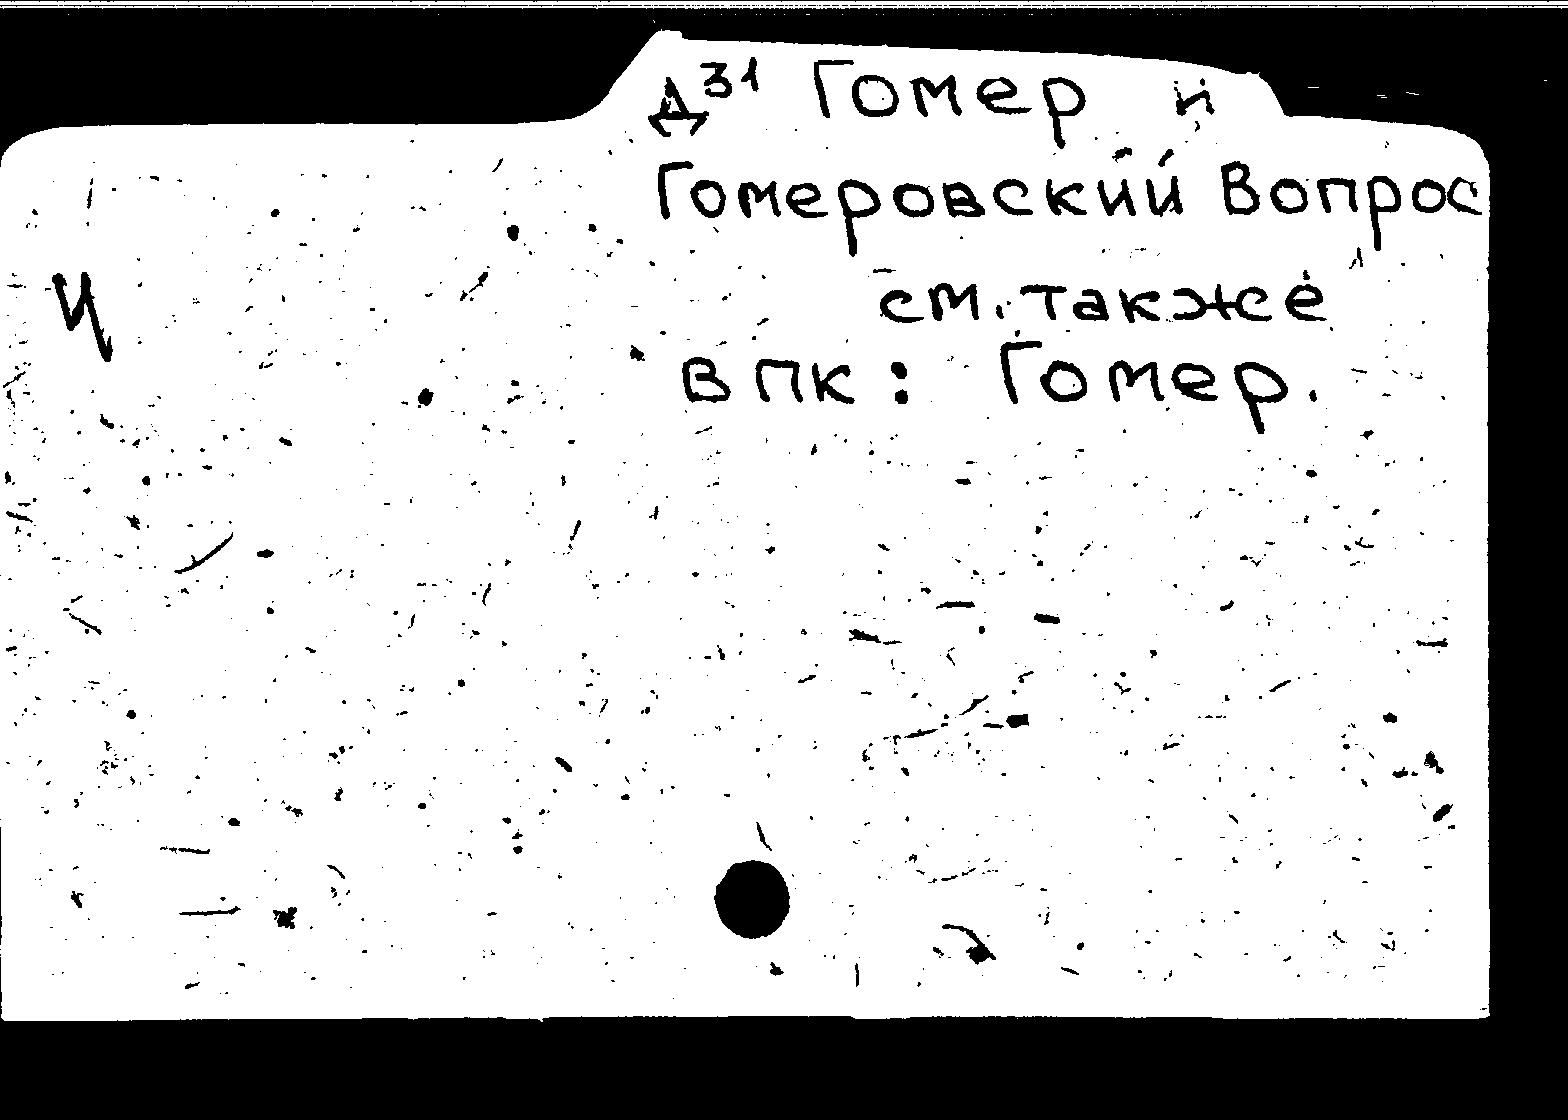 Д³¹ Гомер и
Гомеровский Вопрос
Ч
см. также
в ПК: Гомер.